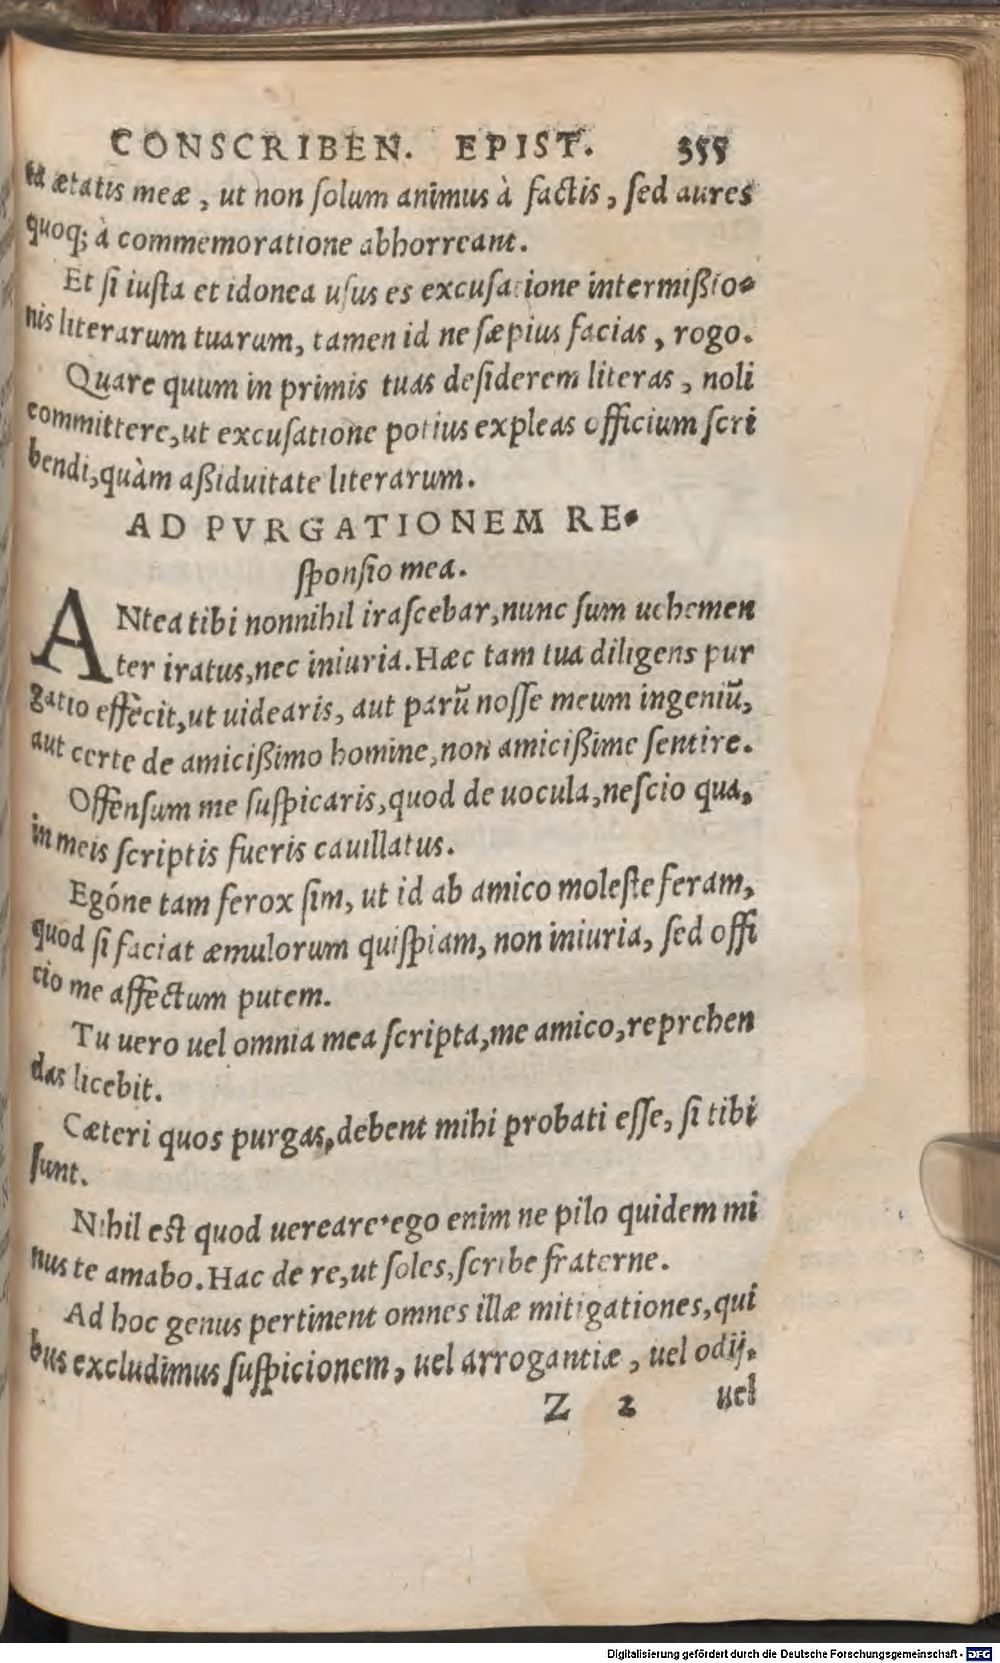 CONSCRIBEN. EPIST. 355
ea ætatis meæ, ut non ſolum animus à factis, ſed aures
quoq; à commemoratione abhorreant.
Et ſi iuſta et idonea uſus es excuſatione intermißio-
nis literarum tuarum, tamen id ne ſæpius facias, rogo.
Quare quum in primis tuas deſiderem literas, noli
committere, ut excuſatione potius expleas officium ſcri
bendi, quàm aßiduitate literarum.
AD PVRGATIONEM RE-
ſponſio mea.
ANtea tibi nonnihil iraſcebar, nunc ſum uehemen
ter iratus, nec iniuria. Hæc tam tua diligens pur
gatio effecit, ut uidearis, aut parū noſſe meum ingeniū,
aut certe de amicißimo homine, non amicißime ſentire.
Offenſum me ſuſpicaris, quod de uocula, neſcio qua,
in meis ſcriptis fueris cauillatus.
Egóne tam ferox ſim, ut id ab amico moleſte feram,
quod ſi faciat æmulorum quiſpiam, non iniuria, ſed offi
cio me affectum putem.
Tu uero uel omnia mea ſcripta, me amico, reprehen
das licebit.
Cæteri quos purgas, debent mihi probati eſſe, ſi tibi
ſunt.
Nihil eſt quod uereare· ego enim ne pilo quidem mi
nus te amabo. Hac de re, ut ſoles, ſcribe fraterne.
Ad hoc genus pertinent omnes illæ mitigationes, qui
bus excludimus ſuſpicionem, uel arrogantiæ, uel odij,
Z 2 uel
Digitalisierung gefördert durch die Deutsche Forschungsgemeinschaft - DFG